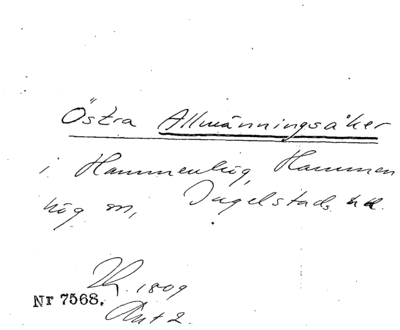 Östra Allmänningsåker
i Hammenhög, Hammen
hög sn, Ingelstads hd.
1809
Nr 7568.
Akt 2.